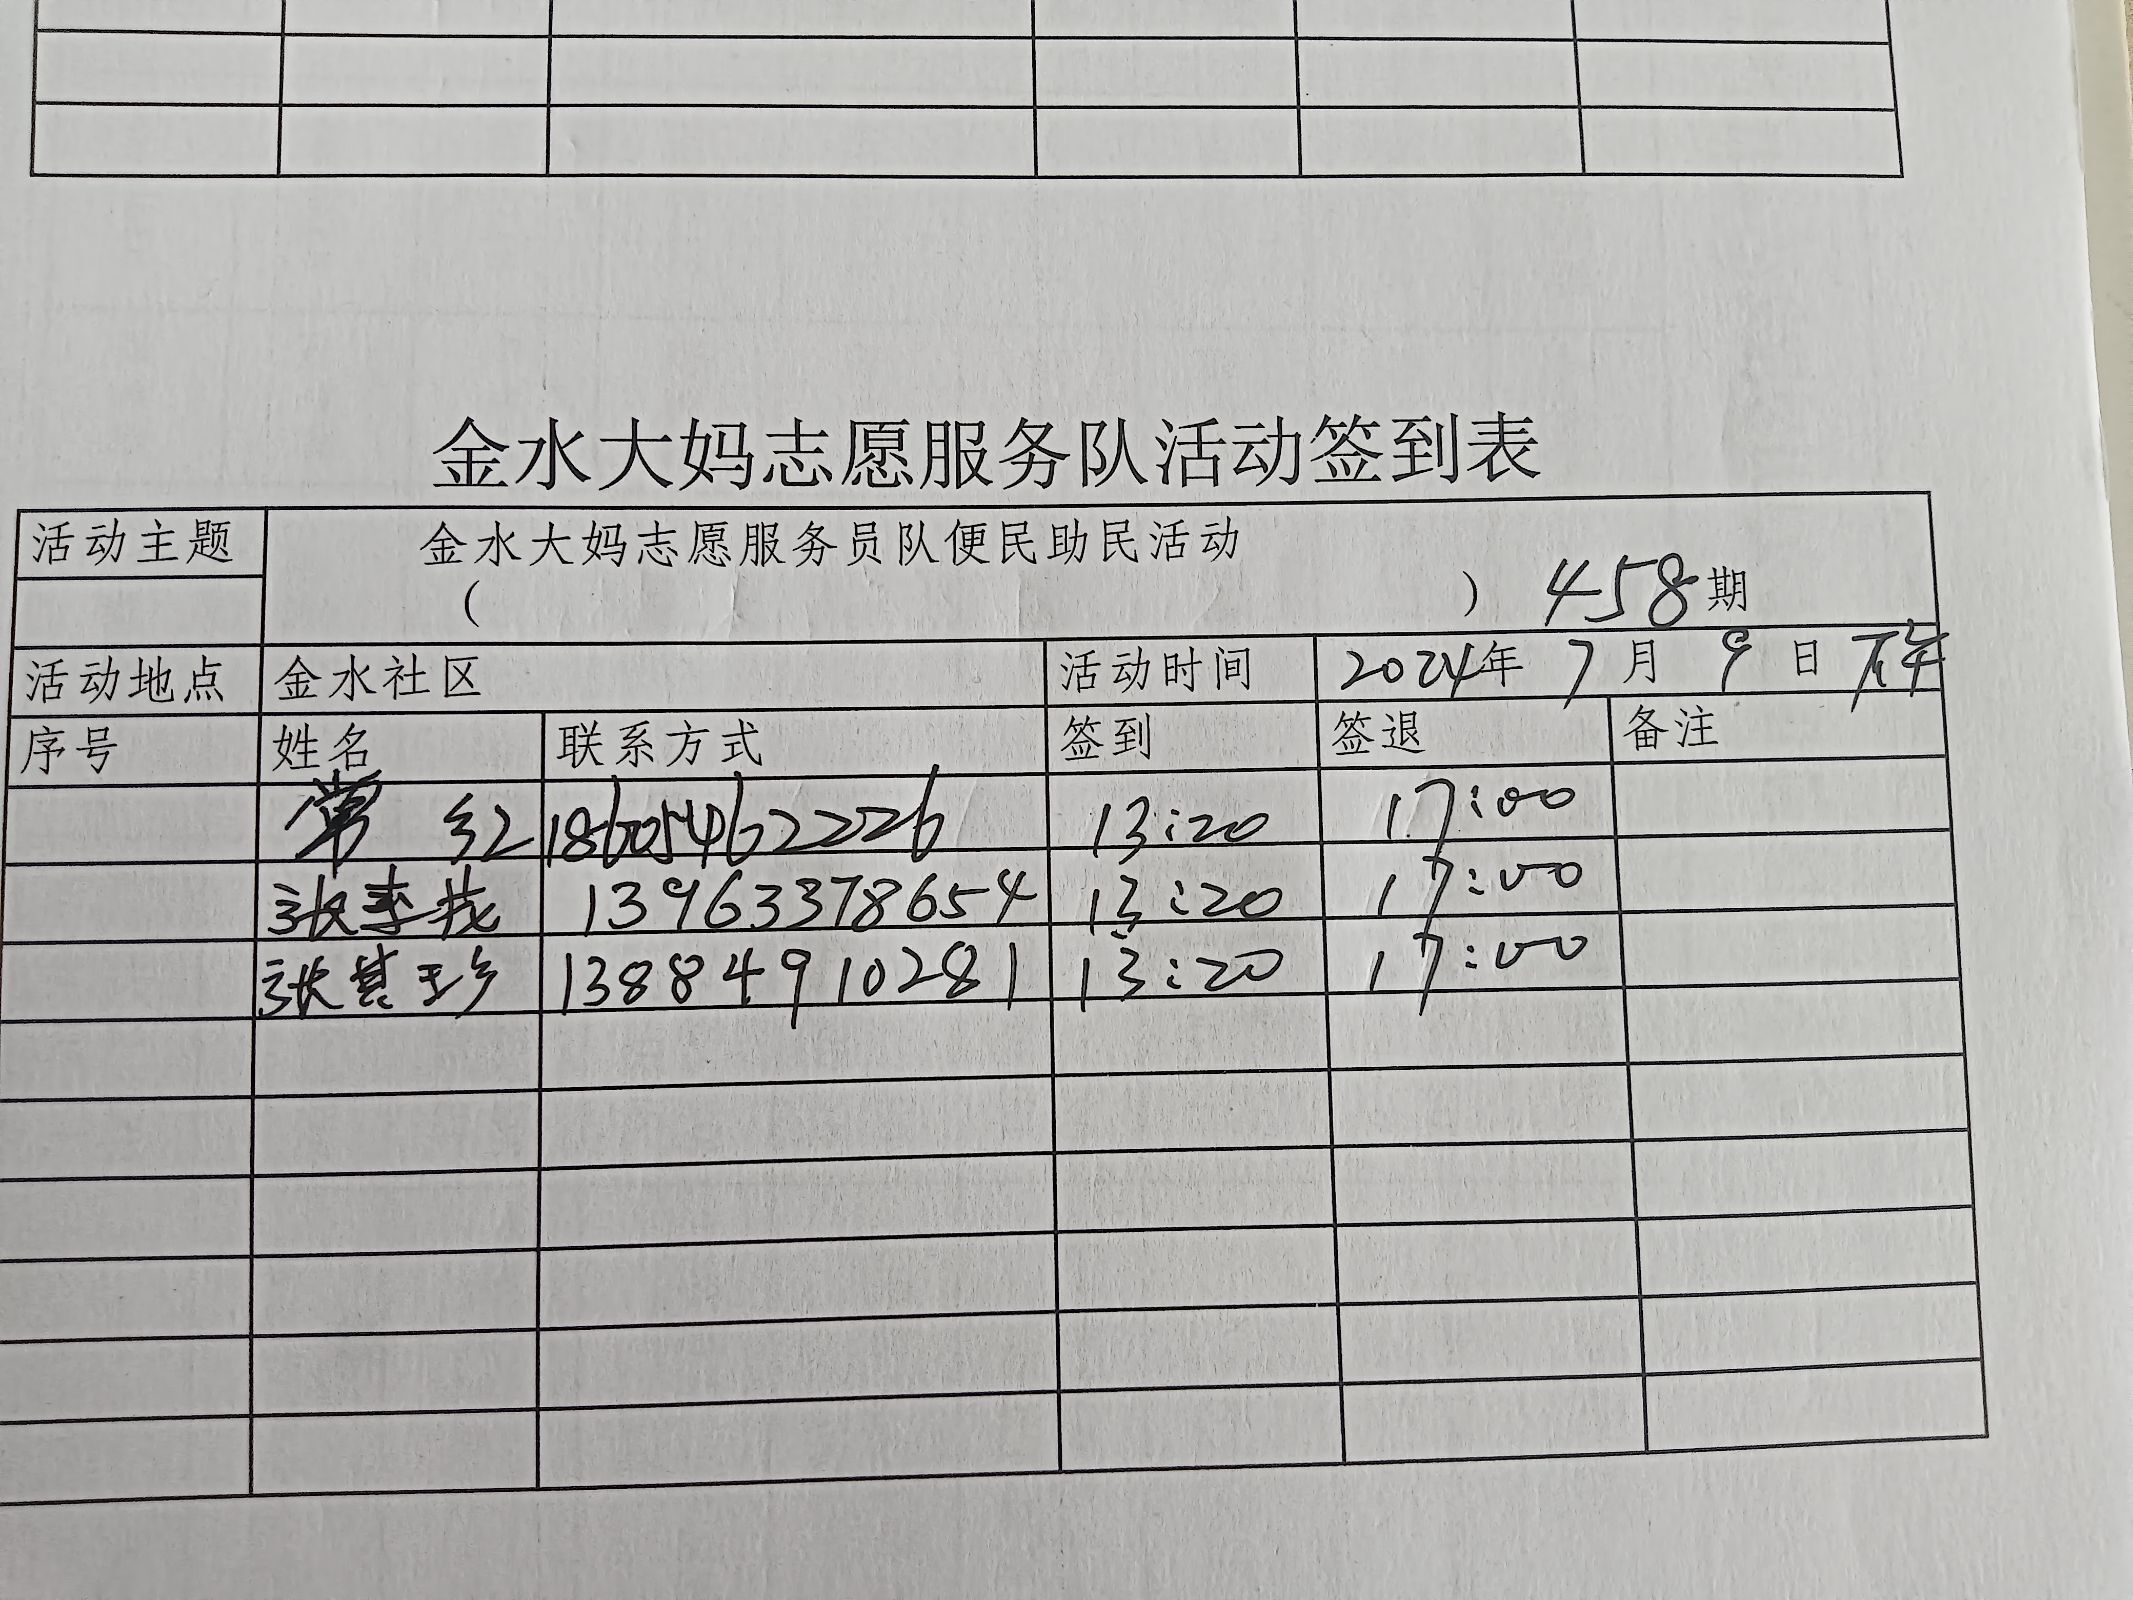 金水大妈志愿服务队活动签到表
活动主题 金水大妈志愿服务员队便民助民活动
( ) 458期
活动地点 金水社区 活动时间 2024年 7月 9日 下午
序号 姓名 联系方式 签到 签退 备注
常红 18605462226 13:20 17:00
张 13963378654 13:20 17:00
张其珍 13884910281 13:20 17:00